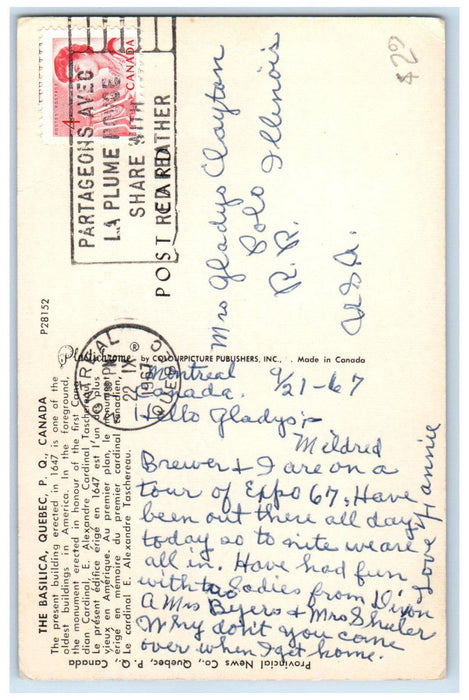 $2⁰⁰
4
CANADA
PARTAGEONS AVEC
LA PLUME ROUGE
SHARE WITH
RED FEATHER
POST CARD
Mrs Gladys Clayton
Polo Illinois
R.R.
U.S.A.
P28152
Plastichrome ® by COLOURPICTURE PUBLISHERS, INC., . Made in Canada
MONTREAL
PM
22 IX
1967
QUEBEC
THE BASILICA, QUEBEC, P. Q., CANADA
The present building erected in 1647 is one of the
oldest buildings in America. In the foreground,
the monument erected in honour of the first Cana-
dian Cardinal, E. Alexandre Cardinal Taschereau.
Le présent édifice érigé en 1647 est l'un des plus
vieux en Amérique. Au premier plan, le monument
érigé en mémoire du premier cardinal canadien,
le cardinal E. Alexandre Taschereau.
Provincial News Co., Quebec, P. Q., Canada
Montreal 9/21-67
Canada.
Hello Gladys:-
Mildred
Brewer & I are on a
tour of Expo 67, Have
been out there all day
today so to nite we are
all in. Have had fun
with two Ladies from Dixon
A Mrs Byers & Mrs Shuler
Why don't you come
over when I get home.
Love Fannie